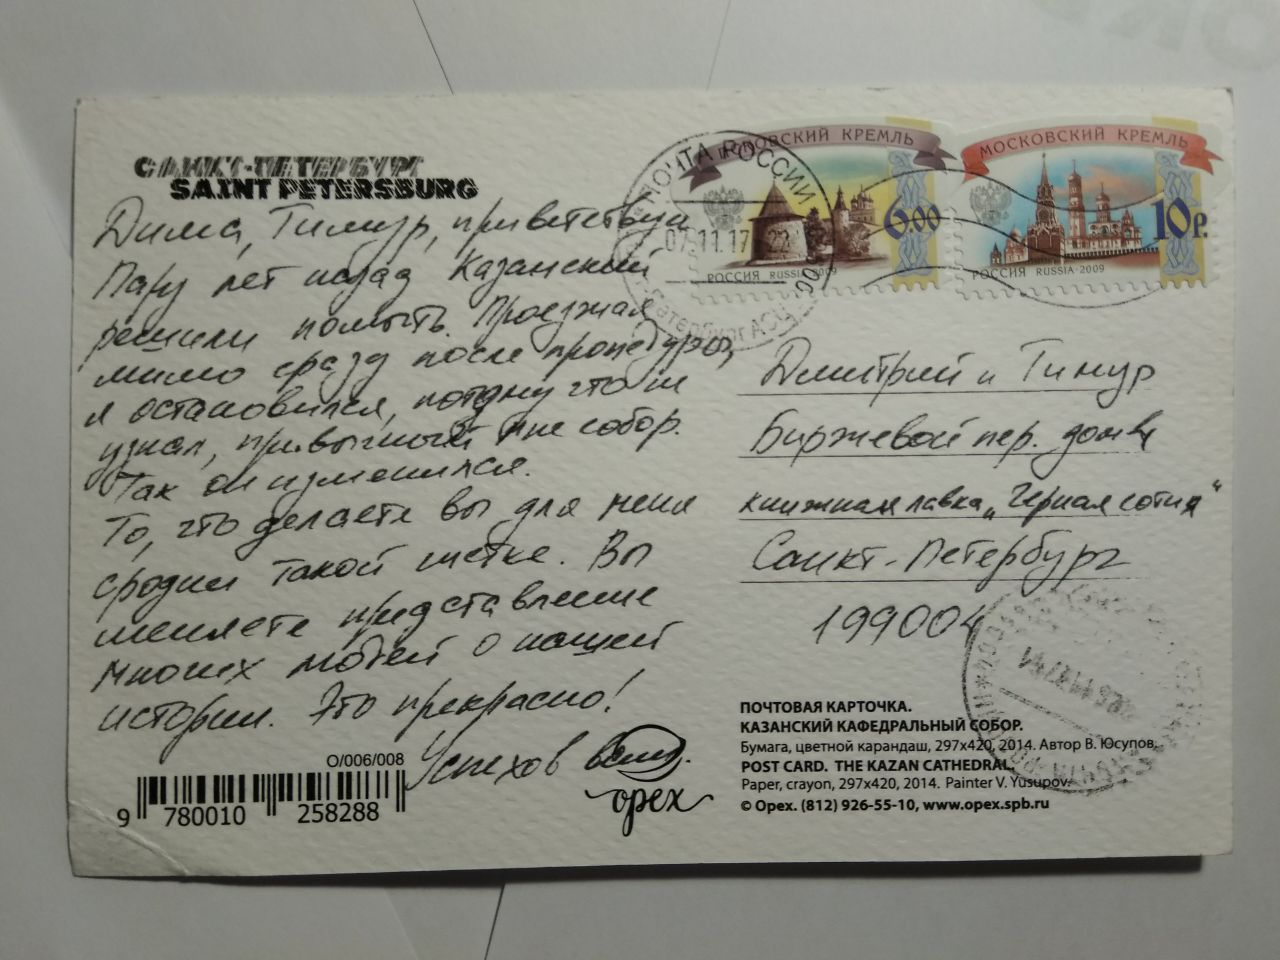 САНКТ-ПЕТЕРБУРГ
SAINT PETERSBURG
Дима, Тимур, приветствую
Пару лет назад Казанский
решили помыть. Проезжая
мимо сразу после процедуры,
я остановился, потому что не
узнал, привычный мне собор.
Так он изменился.
То, что делаете вы для меня
сродни такой щетке. Вы
меняете представление
многих людей о нашей
истории. Это прекрасно!
Успехов вам.
O/006/008
9 780010 258288
орех
ПСКОВСКИЙ КРЕМЛЬ
6.00
РОССИЯ RUSSIA·2009
МОСКОВСКИЙ КРЕМЛЬ
10р.
РОССИЯ RUSSIA·2009
ПОЧТА РОССИИ
07.11.17 22
Дмитрий и Тимур
Биржевой пер. дом
книжная лавка „Черная сотня“
Санкт-Петербург
199004
ПОЧТОВАЯ КАРТОЧКА.
КАЗАНСКИЙ КАФЕДРАЛЬНЫЙ СОБОР.
Бумага, цветной карандаш, 297х420, 2014. Автор В. Юсупов.
POST CARD. THE KAZAN CATHEDRAL.
Paper, crayon, 297x420, 2014. Painter V. Yusupov.
© Орех. (812) 926-55-10, www.opex.spb.ru